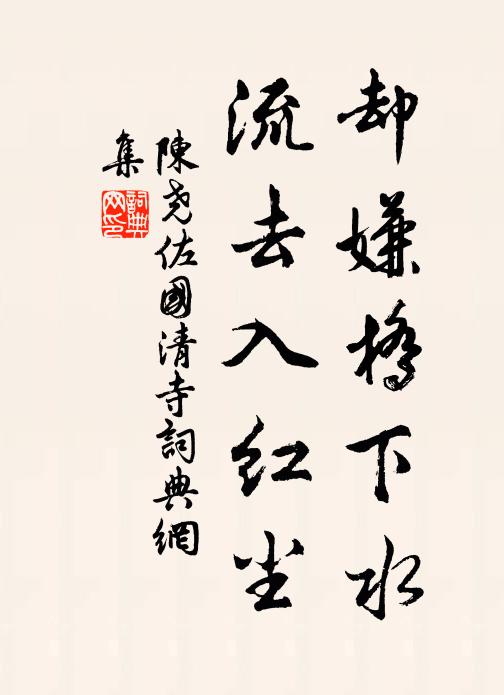 却嫌橋下水
流去入红尘
陳堯佐國清寺詞典網
集
詞典网印